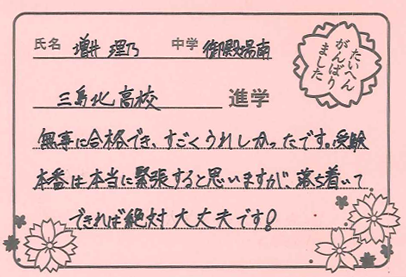 氏名 増井 理乃 中学 御殿場南
たいへん
がんばり
ました
三島北高校 進学
無事に合格でき、すごくうれしかったです。受験
本番は本当に緊張すると思いますが、落ち着いて
できれば絶対大丈夫です!